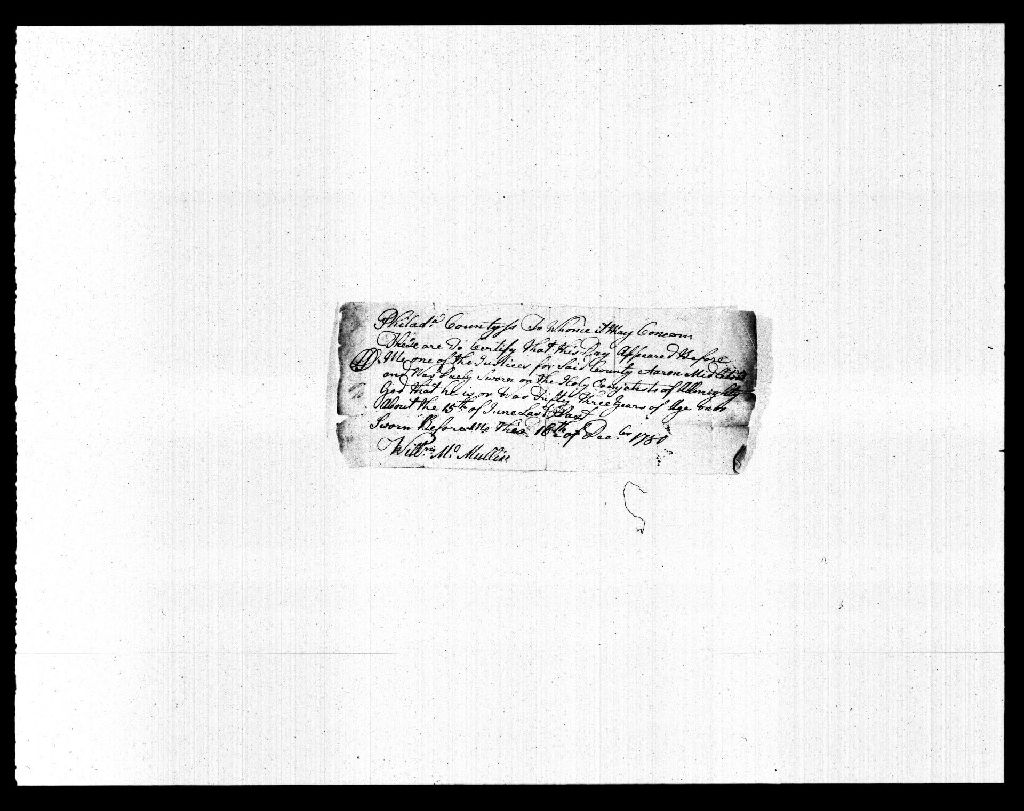 Philad.ª County ss To Whome it May Concern
These are To Certify that this Day Appeared Before
Me one of the Justices for Said County Aaron
and Was Duely Sworn on the Holy of Almighty
God that he is or was Fifty three years of Age
About the 15th of June Last Past
Sworn Before Me this 18th of Decbr 1780
Willm Mc Mullin